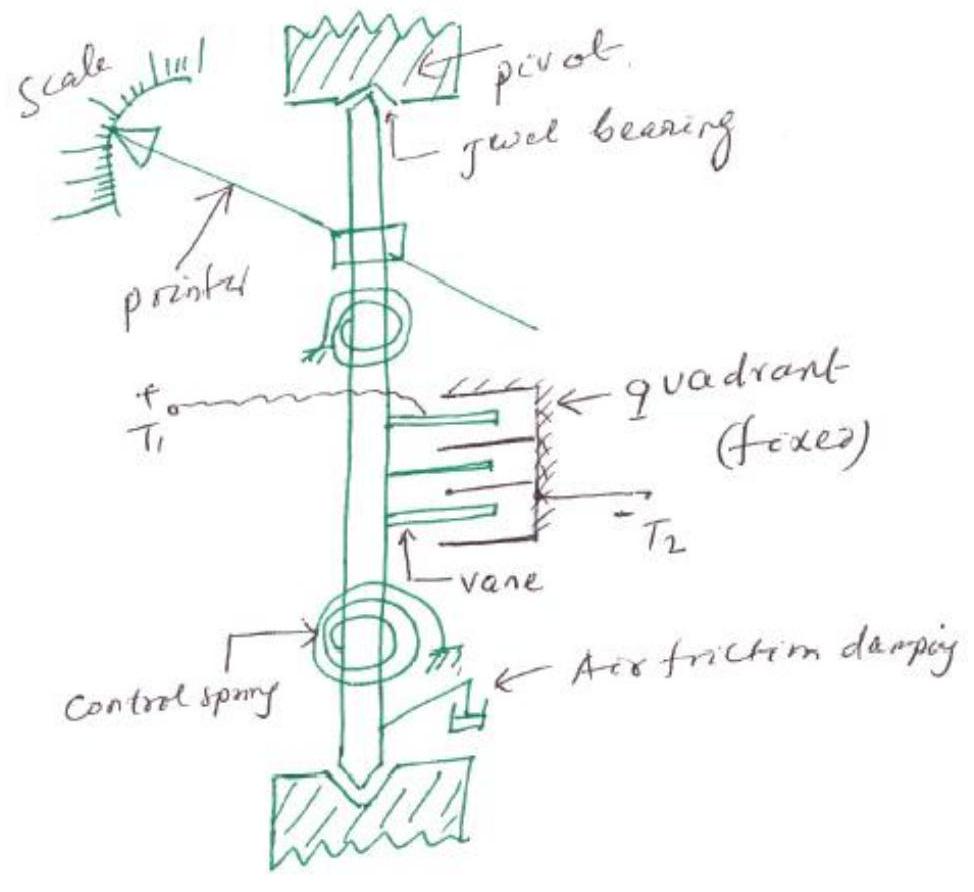 Scale
pivot.
Jwel bearing
pointer
+
T1
quadrant
(fixed)
-
T2
vane
Control spring
Air friction damping